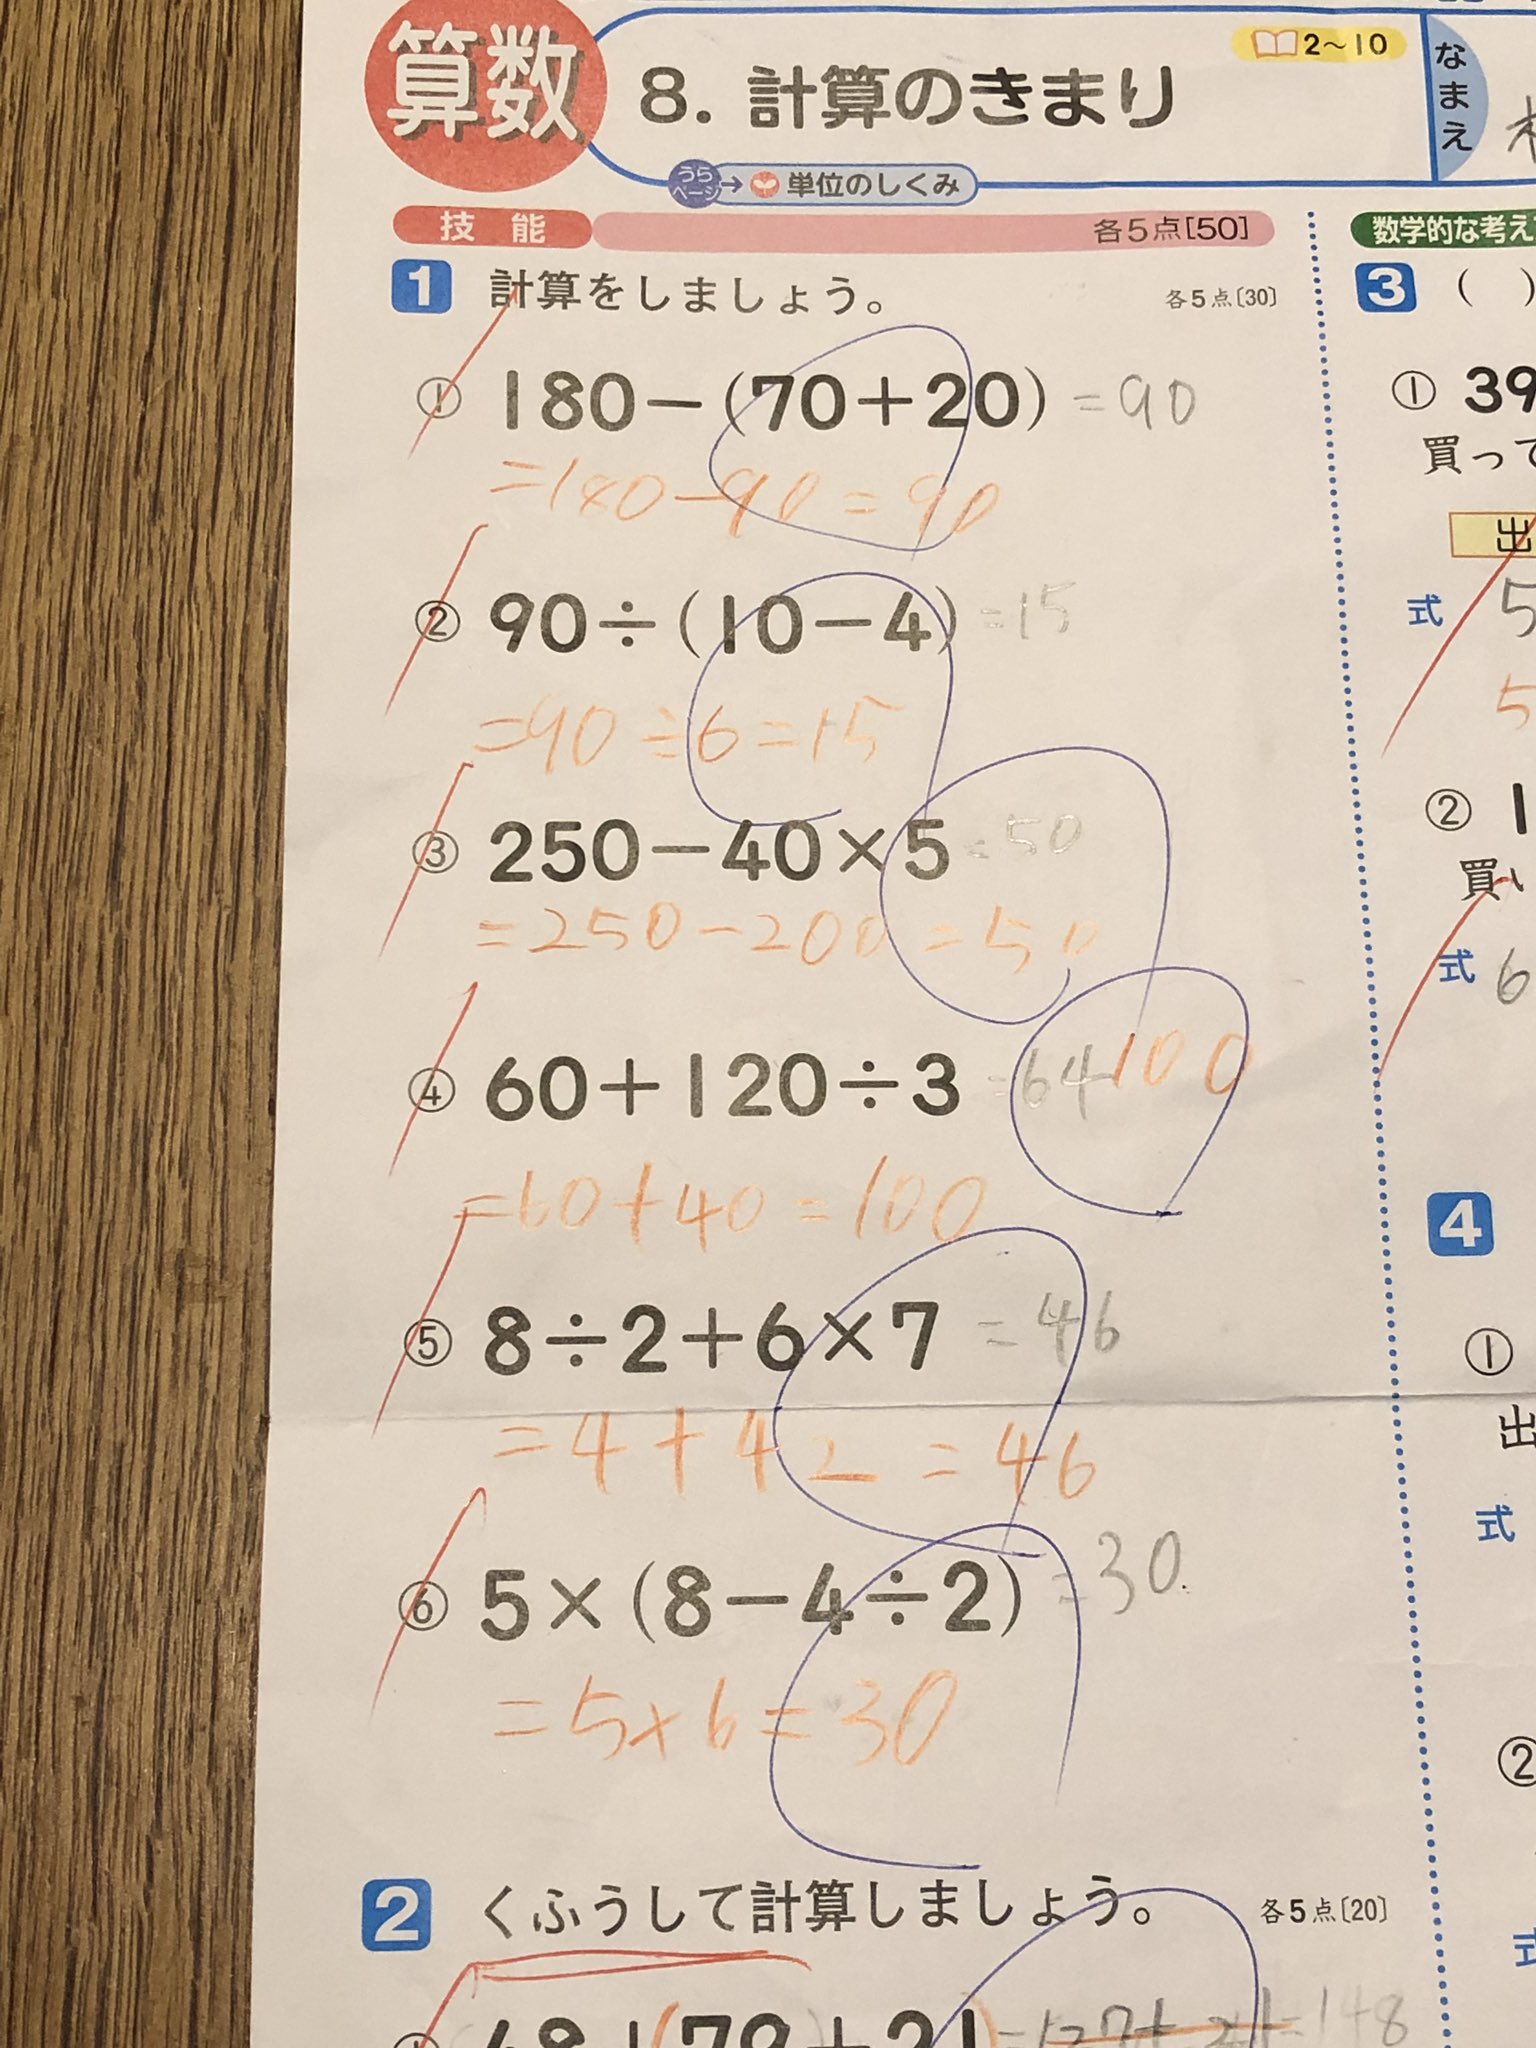 算数
8. 計算のきまり
2～10
なまえ
うらページ→ 単位のしくみ
技能 各5点[50]
1 計算をしましょう。 各5点[30]
① 180－(70＋20) =90
=180-90=90
② 90÷(10－4) =15
=90÷6=15
③ 250－40×5 =50
=250-200=50
④ 60＋120÷3 =64 100
=60+40=100
⑤ 8÷2＋6×7 =46
=4+42=46
⑥ 5×(8－4÷2) =30
=5×6=30
2 くふうして計算しましょう。 各5点[20]
数学的な考え
3 ( )
① 39
買って
出
式 5
5
② 1
買い
式 6
4
①
出
式
②
式